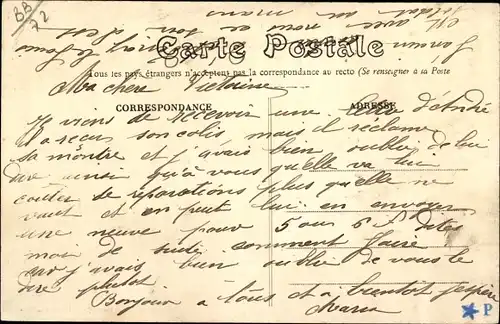 BB
72
Carte Postale
Tous les pays étrangers n'acceptent pas la correspondance au recto (Se renseigner à la Poste
Ma chère Victorine
CORRESPONDANCE
ADRESSE
Je viens de recevoir une lettre d'André
Il a reçu son colis mais il réclame
sa montre et j'avais bien oublié de lui
dire ainsi qu'à vous qu'elle va lui
coûter de réparations plus qu'elle ne
vaut et on peut lui en envoyer
une neuve pour 5 ou 6 f. Dites
moi de suite comment faire
car j'avais bien oublié de vous le
dire plutot
Bonjour a tous et a bientôt j'espère
Maria
P